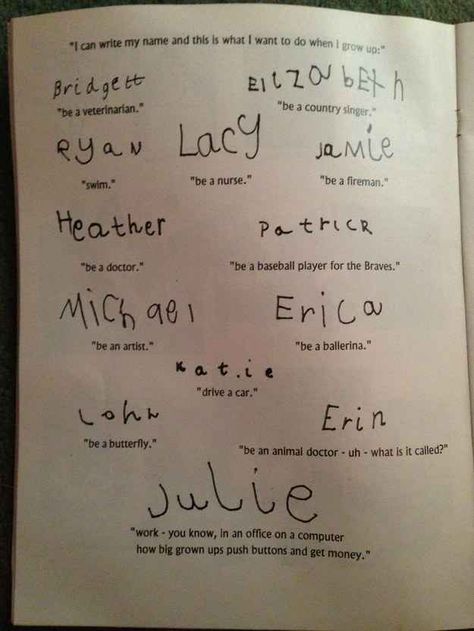 "I can write my name and this is what I want to do when I grow up:"
Bridgett ElizabETh
"be a veterinarian." "be a country singer."
RyaN LacY JaMie
"swim." "be a nurse." "be a fireman."
Heather PatricR
"be a doctor." "be a baseball player for the Braves."
Michael Erica
"be an artist." "be a ballerina."
Kat.ie
"drive a car."
John Erin
"be a butterfly." "be an animal doctor - uh - what is it called?"
Julie
"work - you know, in an office on a computer
how big grown ups push buttons and get money."